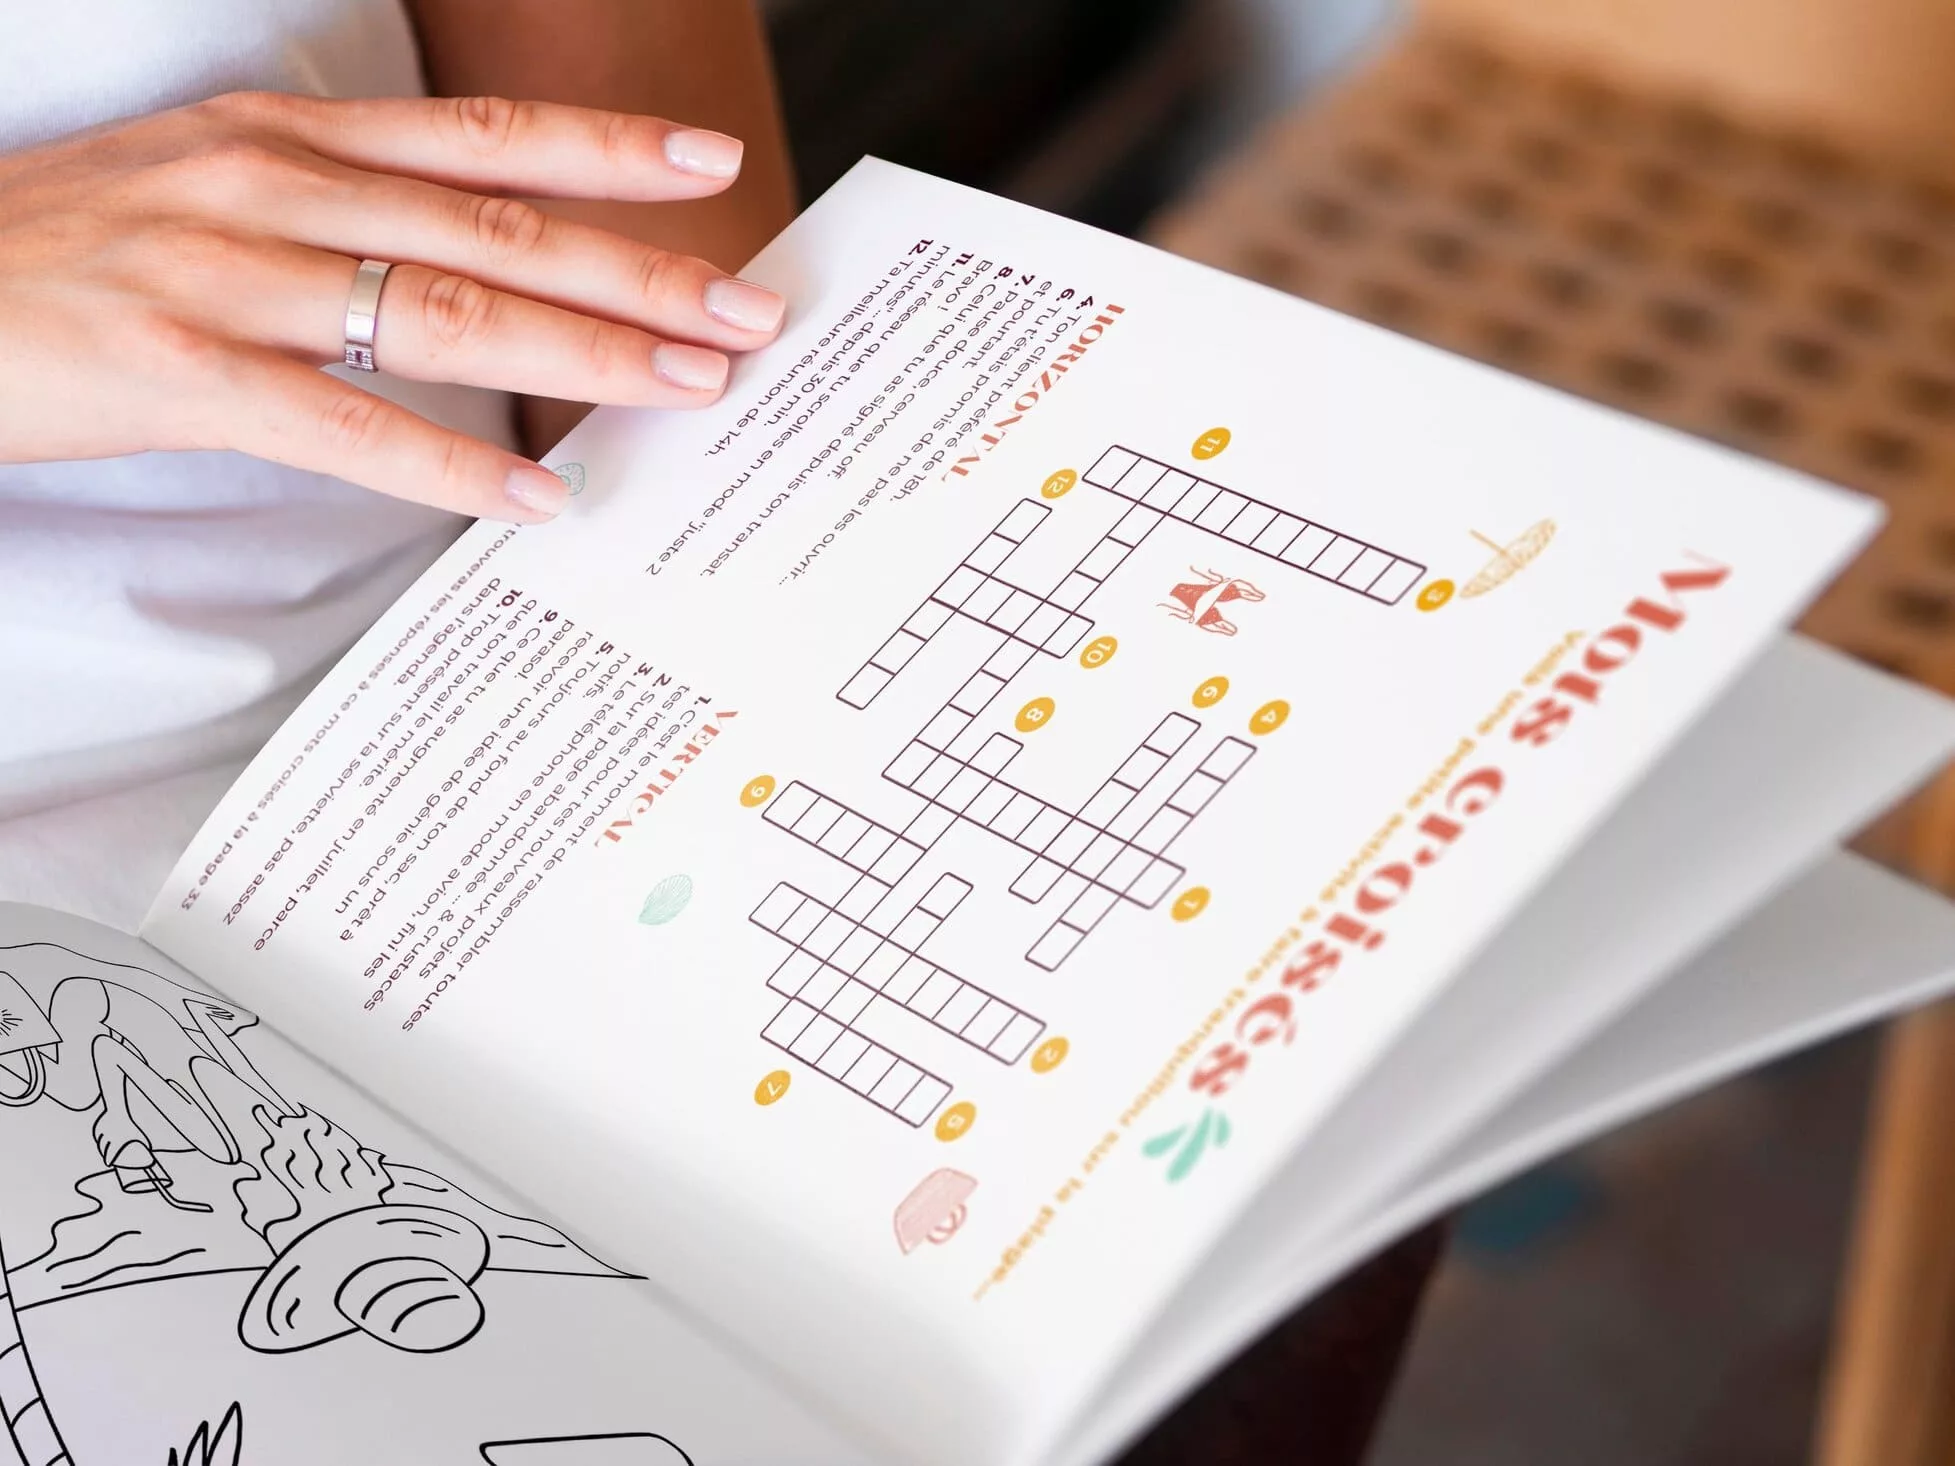 Mots croisés
Voilà une petite activité à faire tranquillou sur la plage...
11
3
12
10
6
4
8
9
1
2
7
5
HORIZONTAL
4. Ton client préféré de 18h.
6. Tu t'étais promis de ne pas les ouvrir...
et pourtant.
7. Pause douce, cerveau off.
8. Celui que tu as signé depuis ton transat.
Bravo !
11. Le réseau que tu scrolles en mode "juste 2
minutes"... depuis 30 min.
12. Ta meilleure réunion de 14h.
VERTICAL
1. C'est le moment de rassembler toutes
tes idées pour tes nouveaux projets
2. Sur la page abandonnée ... & crustacés
3. Le téléphone en mode avion, fini les
notifs.
5. Toujours au fond de ton sac, prêt à
recevoir une idée de génie sous un
parasol.
9. Ce que tu as augmenté en juillet, parce
que ton travail le mérite.
10. Trop présent sur la serviette, pas assez
dans l'agenda.
trouveras les réponses à ce mots croisés à la page 33